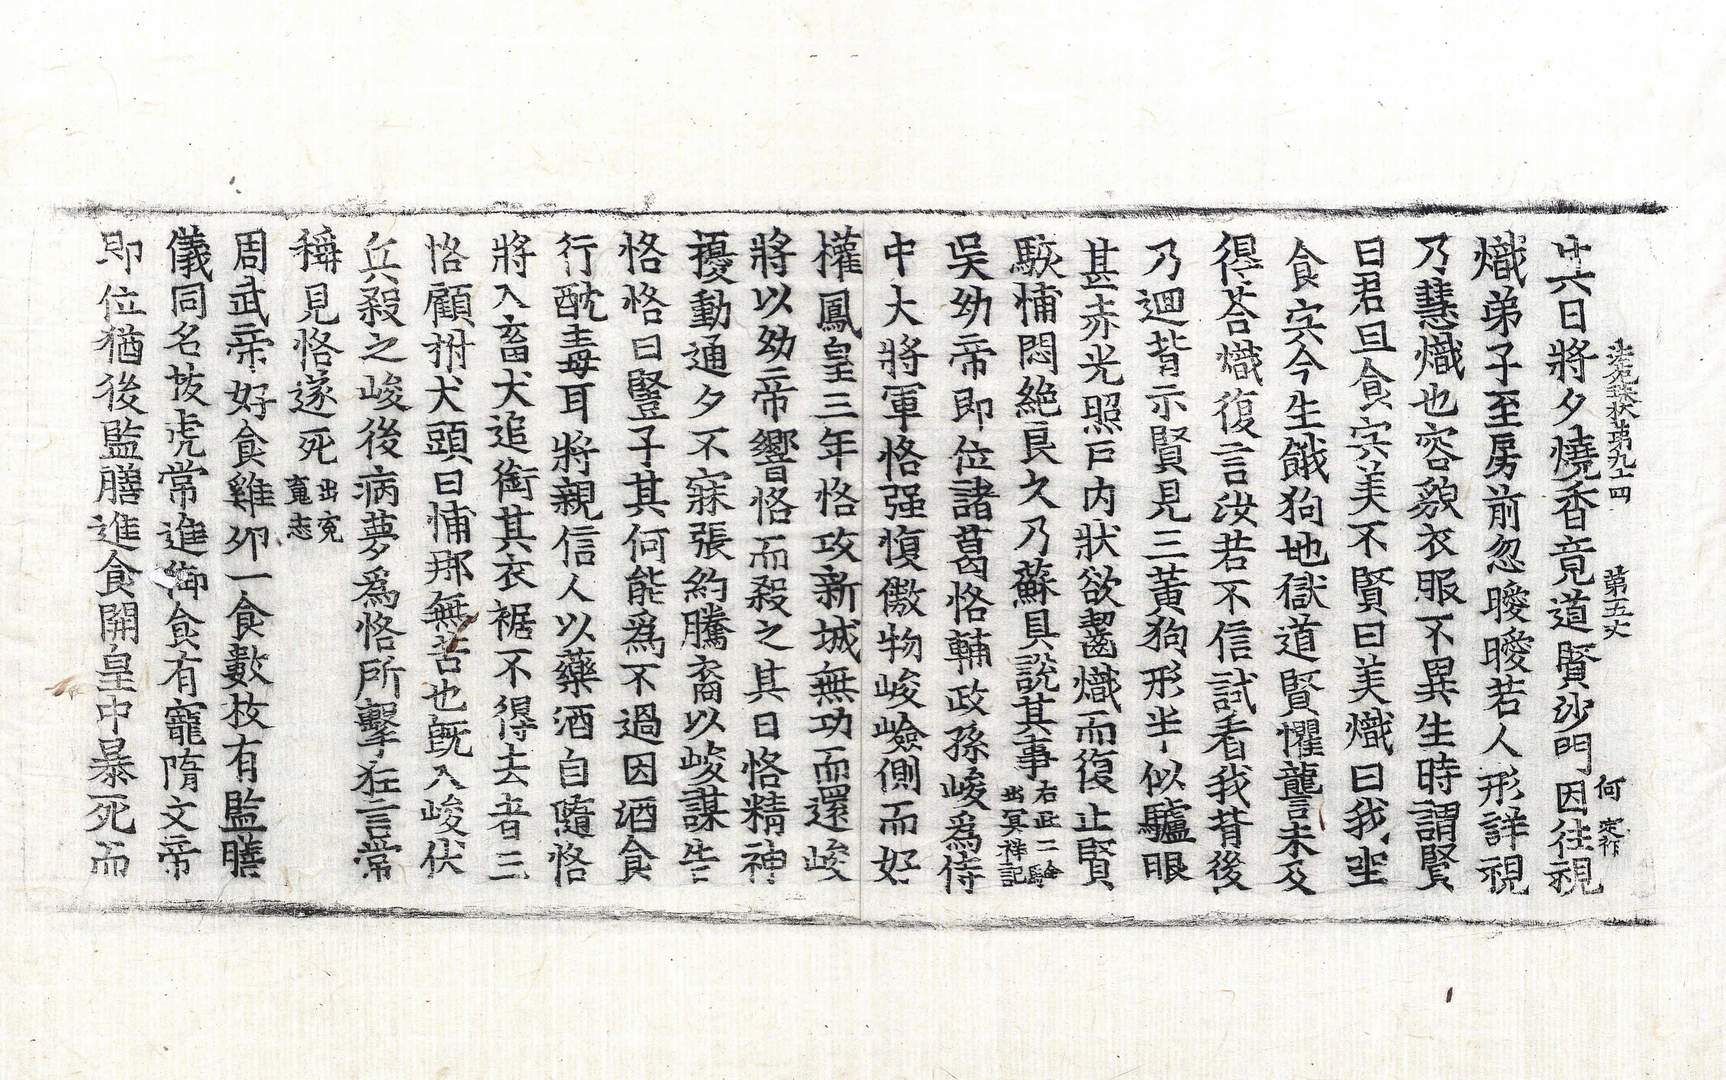 法苑珠林第九十四 第五丈 何
廿六日將夕燒香竟道賢沙門因往視
熾弟子至房前忽曖曖若人形詳視
乃慧熾也容貌衣服不異生時謂賢
曰君旦食宍美不賢曰美熾曰我坐
食宍今生餓狗地獄道賢懼讋未及
得荅熾復言汝若不信試看我背後
乃迴背示賢見三黃狗形半似驢眼
甚赤光照戶內狀欲齧熾而復止賢
駭悑悶絕良久乃蘇具說其事右此二驗出冥祥記
吳幼帝即位諸葛恪輔政孫峻爲侍
中大將軍恪强愎傲物峻嶮側而好
權鳳皇三年恪攻新城無功而還峻
將以幼帝響恪而殺之其日恪精神
擾動通夕不寐張約騰裔以峻謀告
恪恪曰豎子其何能爲不過因酒食
行酖毒耳將親信人以藥酒自隨恪
將入畜犬追銜其衣裾不得去者三
恪顧拊犬頭曰悑那無苦也旣入峻伏
兵殺之峻後病夢爲恪所擊狂言常
稱見恪遂死出寃䰟志
周武帝好食雞卵一食數枚有監膳
儀同名拔虎常進御食有寵隋文帝
即位猶後監膳進食開皇中暴死而